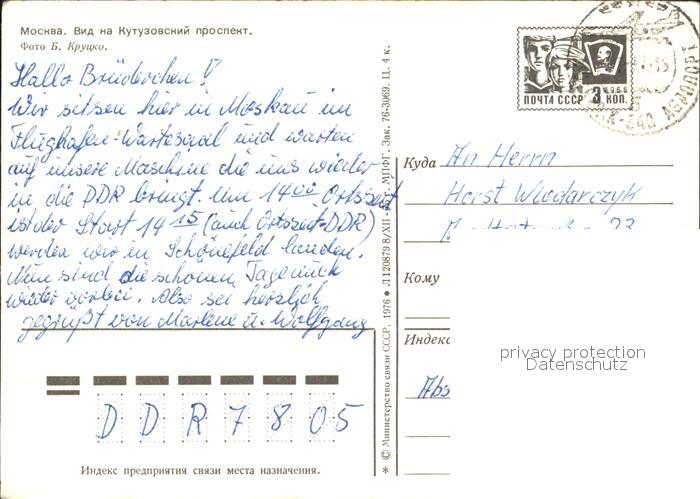 Москва. Вид на Кутузовский проспект.
Фото Б. Круцко.
Hallo Brüderchen!
Wir sitzen hier in Moskau im
Flughafen-Wartesaal und warten
auf unsere Maschine die uns wieder
in die DDR bringt. Um 14 00 Ortszeit
ist der Start 14 15 (auch Ortszeit-DDR)
werden wir in Schönefeld landen.
Nun sind die schönen Tage
wieder vorbei. Also sei herzlich
gegrüßt von Marlene u. Wolfgang
DDR7805
Индекс предприятия связи места назначения.
* © Министерство связи СССР, 1976 ● Л 120879 8/XII- МПФГ. Зак. 76-3069. Ц. 4 к.
ПОЧТА СССР 3 КОП.
1966
АЭРОПОРТ
Куда An Herrn
Horst Wlodarczyk
Кому
Индекс
Abs
privacy protection
Datenschutz